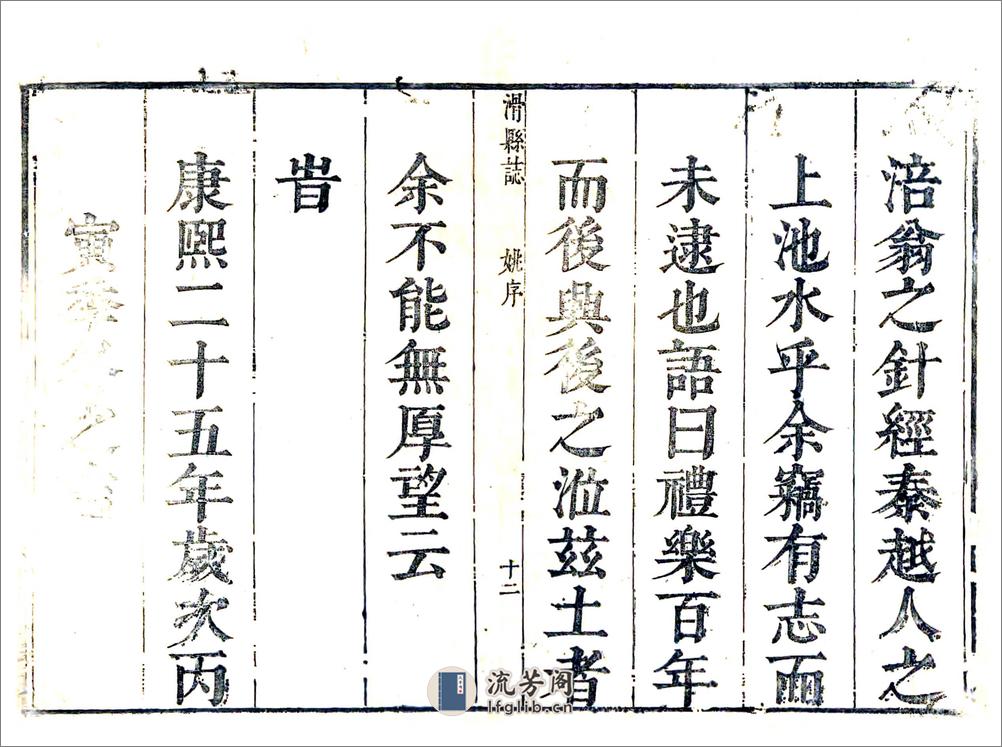 涪翁之針經秦越人之
上池水乎余竊有志而
未逮也語曰禮樂百年
而後興後之涖茲土者
滑縣誌 姚序 十二
余不能無厚望云
旹
康熙二十五年歲次丙
寅
流芳阁
lfglib.cn